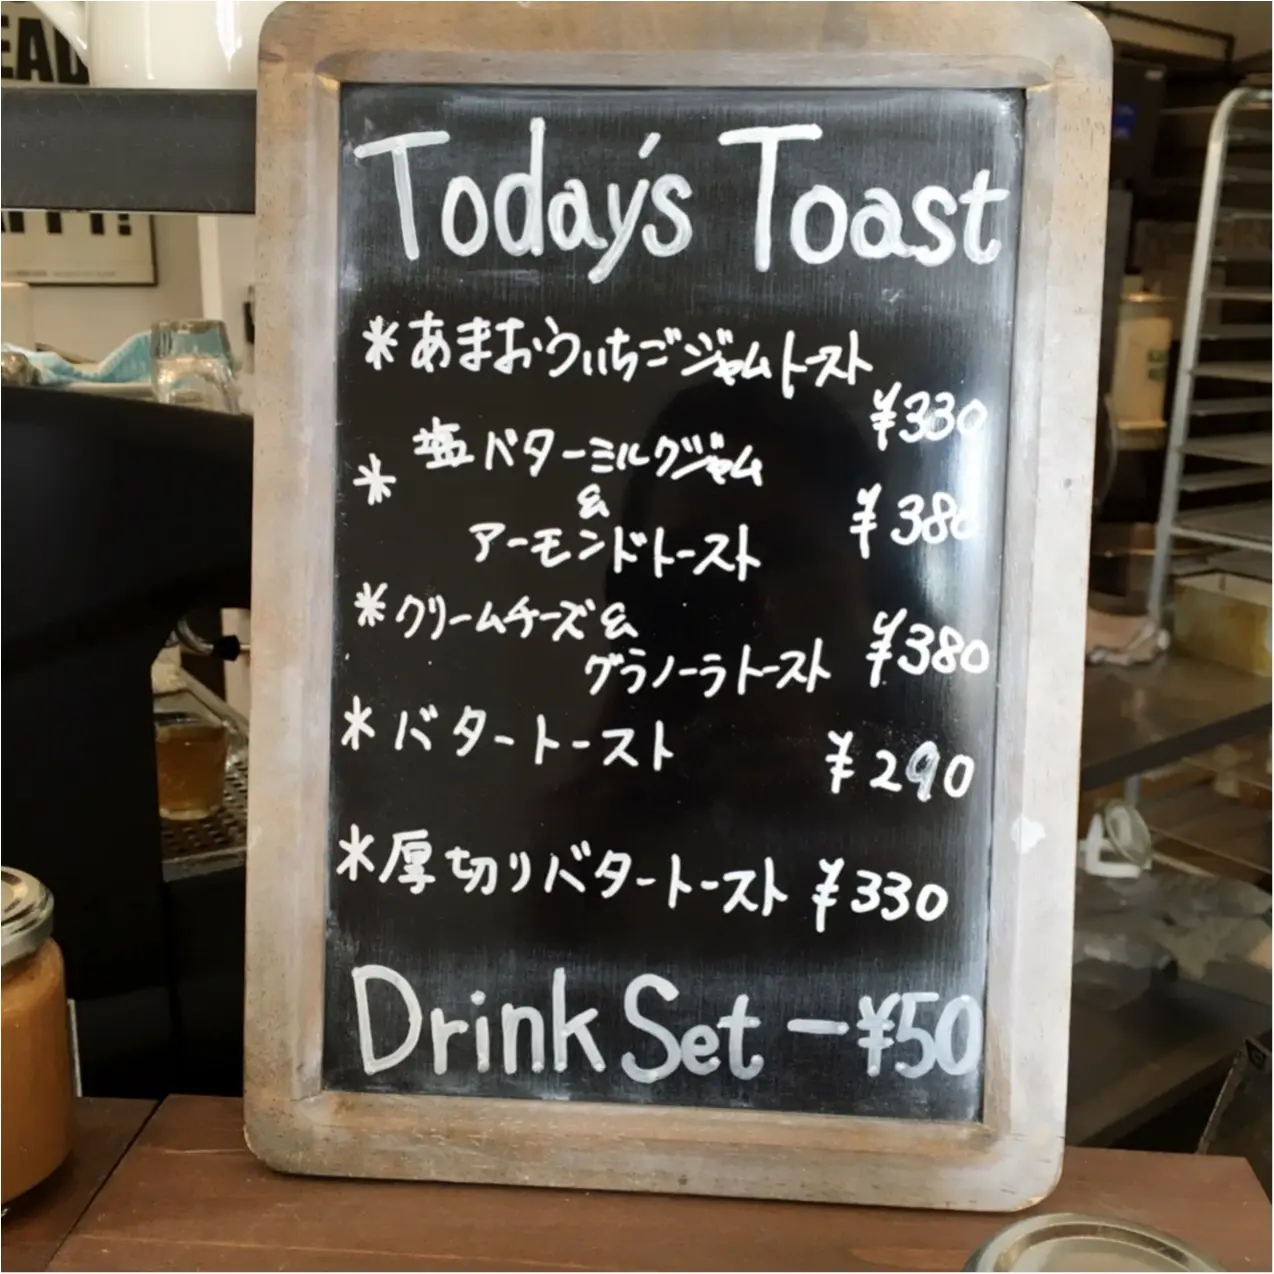 EAD
Today's Toast
*あまおういちごジャムトースト
¥330
*塩バターミルクジャム
&
アーモンドトースト ¥380
*クリームチーズ&
グラノーラトースト ¥380
*バタートースト ¥290
*厚切りバタートースト ¥330
Drink Set -¥50